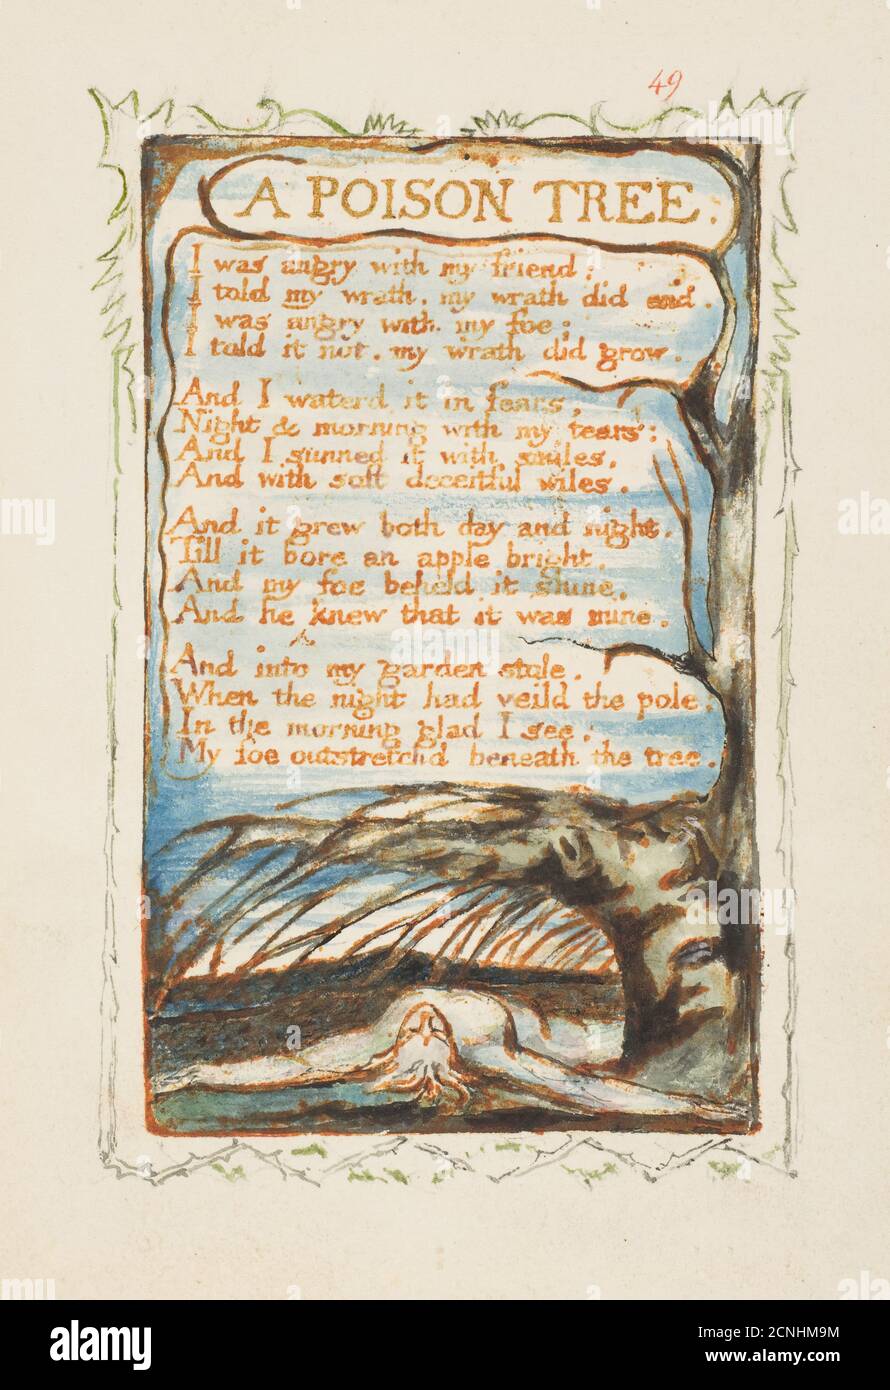 49
A POISON TREE.
I was angry with my friend:
I told my wrath, my wrath did end.
I was angry with my foe:
I told it not, my wrath did grow.
And I waterd it in fears,
Night & morning with my tears:
And I sunned it with smiles,
And with soft deceitful wiles.
And it grew both day and night.
Till it bore an apple bright.
And my foe beheld it shine,
And he knew that it was mine.
And into my garden stole.
When the night had veild the pole;
In the morning glad I see,
My foe outstretchd beneath the tree.
alamy
Image ID: 2CNHM9M
www.alamy.com